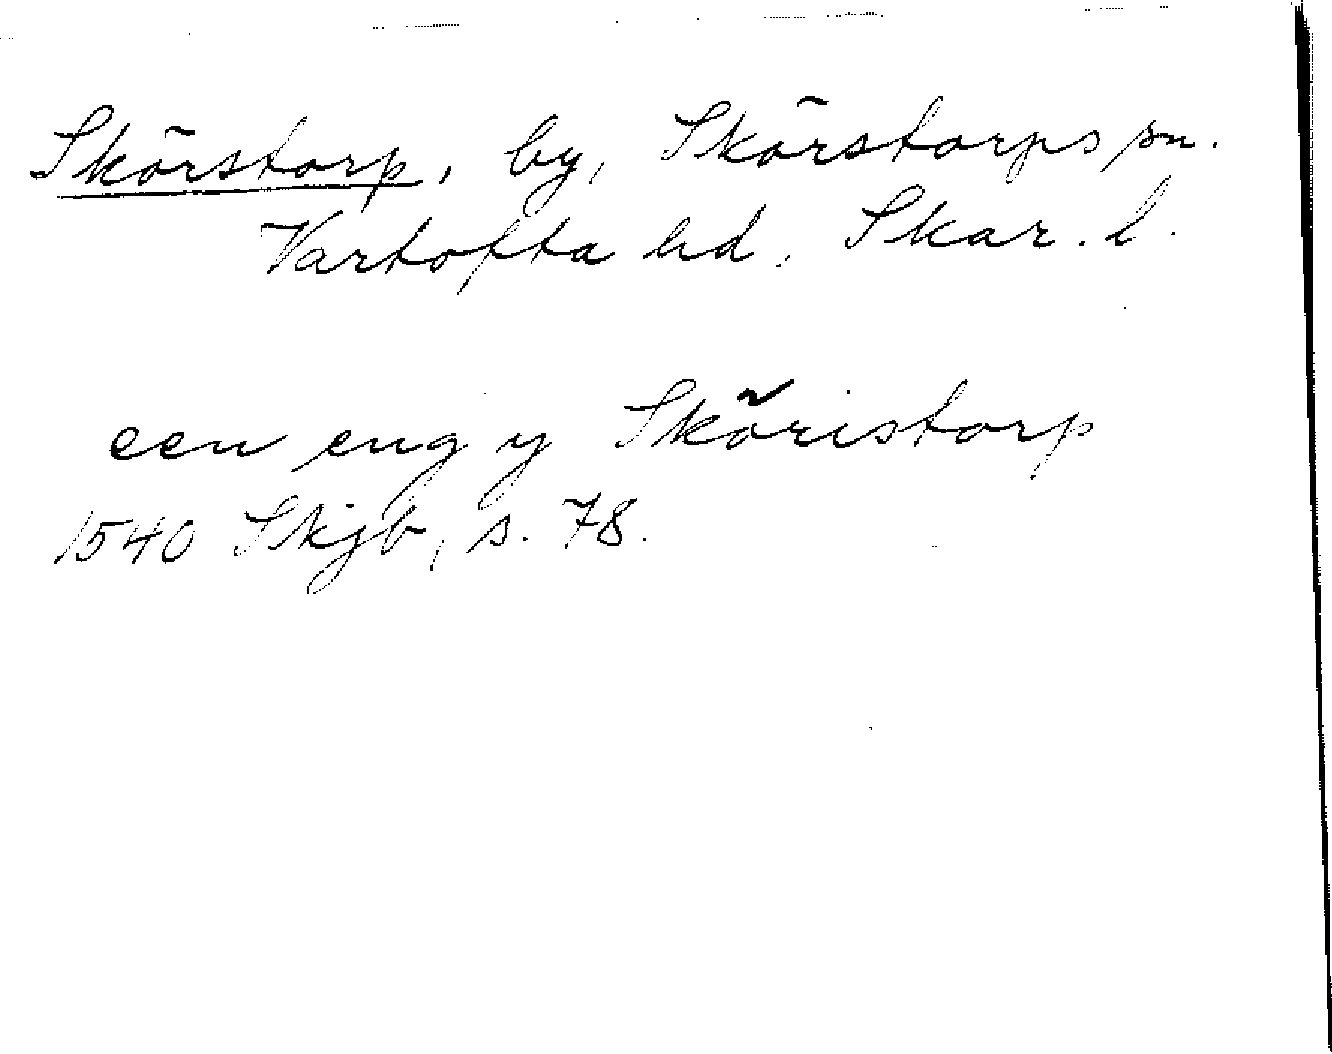 Skörstorp, by, Skörstorps sn.
Vartofta hd. Skar. l.
een eng y Sköristorp
1540 Skjb, s. 78.